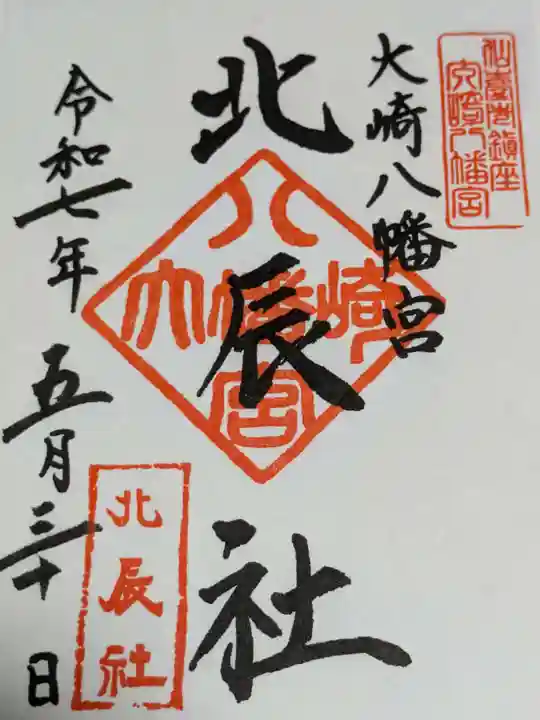 仙臺總鎮座
大崎八幡宮
大崎八幡宮
北辰社
八
大幡崎
宮
令和七年五月三十日
北辰社